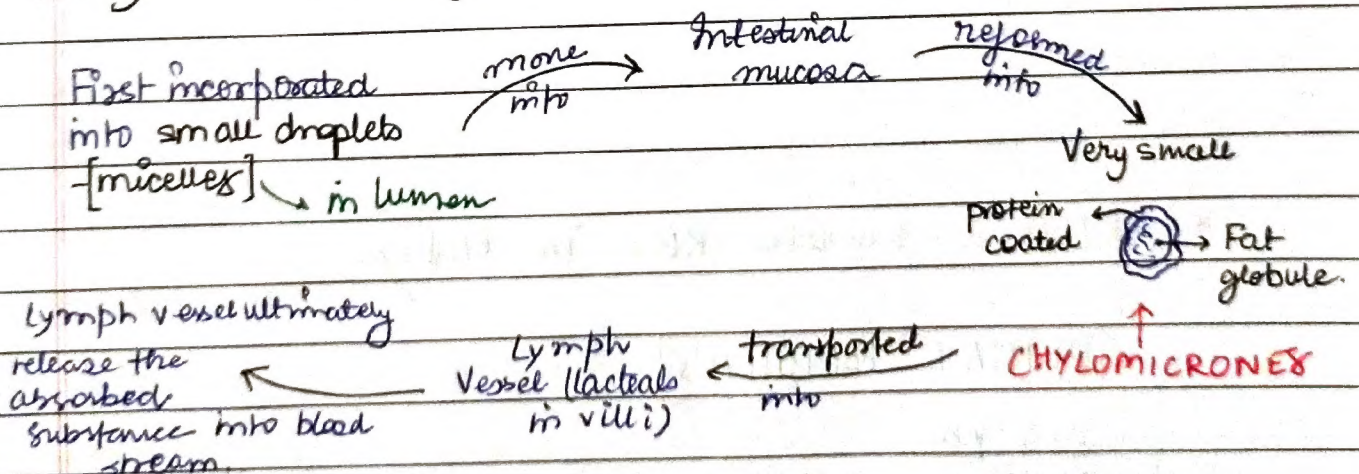 First incorporated
into small droplets
[micelles]
in lumen
move
into
Intestinal
mucosa
reformed
into
Very small
protein
coated
Fat
globule.
CHYLOMICRONES
transported
into
Lymph
Vessel (lacteals
in villi)
Lymph vessel ultimately
release the
absorbed
substance into blood
stream.